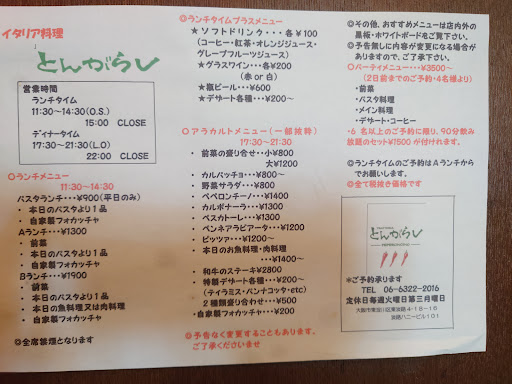 イタリア料理
とんがらし
営業時間
ランチタイム
11:30~14:30(O.S.)
15:00 CLOSE
ディナータイム
17:30~21:30(L.O)
22:00 CLOSE
〇ランチメニュー
11:30~14:30
パスタランチ・・・¥900(平日のみ)
・ 本日のパスタより1品
・ 自家製フォカッチャ
Aランチ・・・¥1300
・ 前菜
・ 本日のパスタより1品
・ 自家製フォカッチャ
Bランチ・・・¥1900
・ 前菜
・ 本日のパスタより1品
・ 本日のお魚料理又は肉料理
・ 自家製フォカッチャ
◎全席禁煙となります
◎ランチタイムプラスメニュー
★ソフトドリンク・・・各¥100
(コーヒー・紅茶・オレンジジュース・
グレープフルーツジュース)
★グラスワイン・・・各¥200
(赤or白)
★瓶ビール・・・¥600
★デザート各種・・・¥200~
〇アラカルトメニュー(一部抜粋)
17:30~21:30
・ 前菜の盛り合せ・・小¥800
大¥1200
・ カルパッチョ・・・¥800~
・ 野菜サラダ・・・¥800
・ ペペロンチーノ・・・¥1400
・ カルボナーラ・・・¥1300
・ ペスカトーレ・・・¥1300
・ ペンネアラビアータ・・¥1200
・ ピッツァ・・・¥1200~
・ 本日のお魚料理・肉料理
・・・¥1400~
・ 和牛のステーキ¥2800
・ 特製デザート各種・・・¥200~
(ティラミス・パンナコッタ・etc)
・ 2種類盛り合わせ・・・¥500
・ 自家製フォカッチャ・・・¥200
◎予告なく変更することもあります。
ご了承くださいませ
◎その他、おすすめメニューは店内外の
黒板・ホワイトボードをご覧下さい。
◎予告無しに内容が変更になる場合が
ありますので、ご了承下さい。
〇パーティメニュー・・・¥3500~
(2日前までのご予約・4名様より)
・前菜
・パスタ料理
・メイン料理
・デザート・コーヒー
・6名以上のご予約に限り、90分飲み
放題のセット¥1500が付けれます。
◎ランチタイムのご予約はAランチから
でお願いします。
◎全て税抜き価格です
とんがらし
*ご予約承ります
TEL 06-6322-2016
定休日毎週火曜日第三月曜日
大阪市東淀川区東淡路4-18-15
淡路ハニービル101